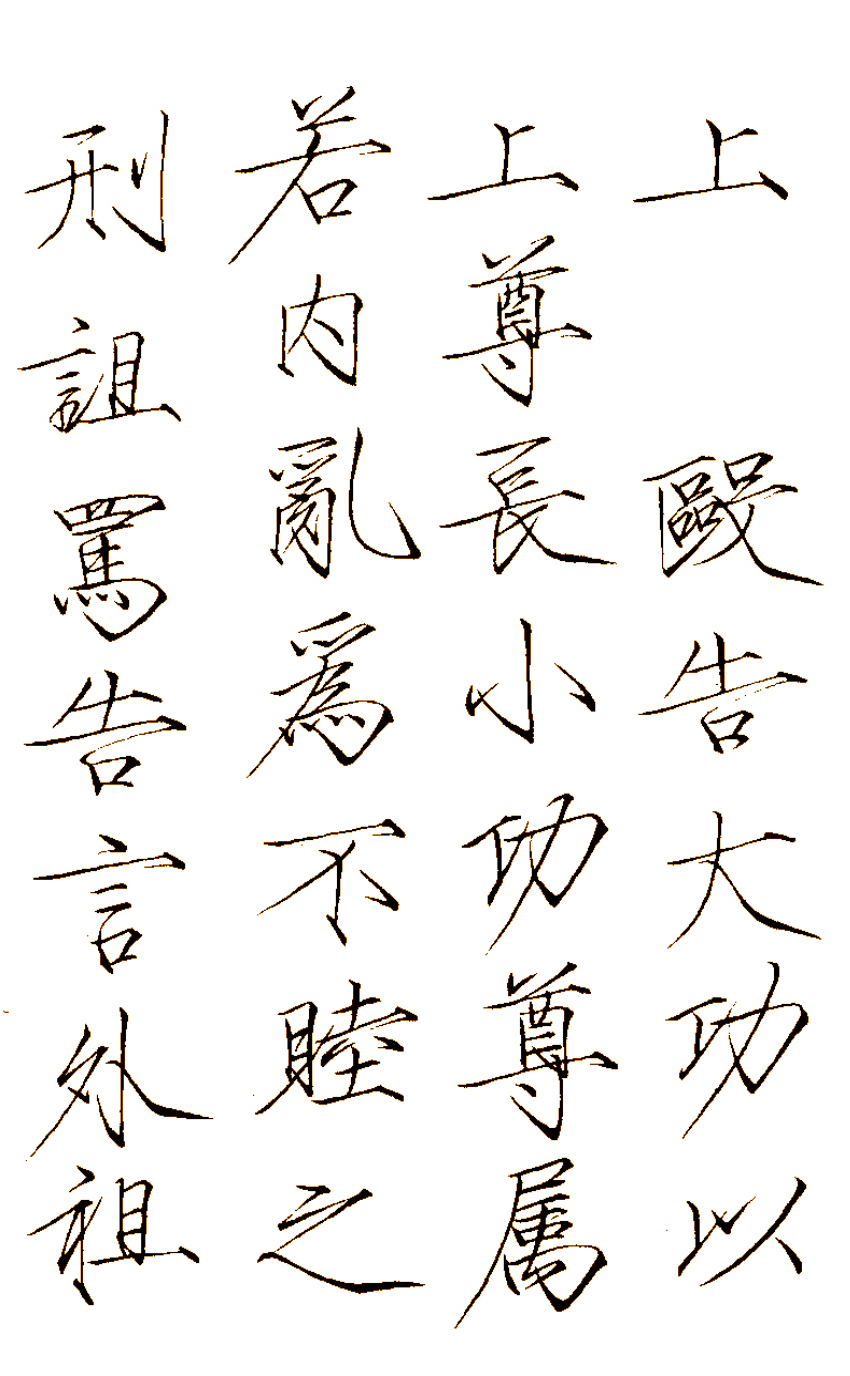 上 毆告大功以
上尊長小功尊属
若内亂為不睦之
刑詛罵告言外祖